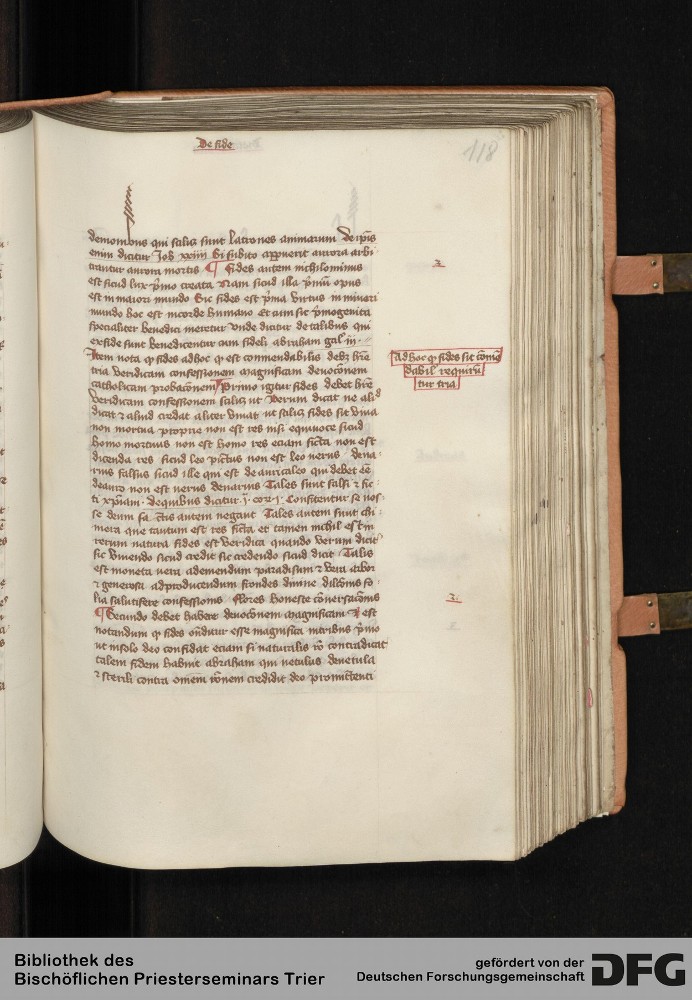 De fide
118
demonibus qui scilicet sunt latrones animarum De ipsis
enim dicitur Job xxiiii Si subito apperuerit aurora arbi
trantur umbram mortis ¶ fides autem nichilominus
est sicud lux primo creata Nam sicud illa primum opus
est in maiori mundo Sic fides est prima virtus in minori
mundo hoc est in corde humano Et cum sic primogenita
specialiter benedici meretur unde dicitur de talibus qui
ex fide sunt benedicentur cum fideli abraham gal iii
Item nota quod fides adhoc quod est commendabilis debet habere
tria veridicam confessionem magnificam deuocionem
catholicam probacionem Primo igitur fides debet habere
veridicam confessionem scilicet ut verum dicat ne aliud
dicat et aliud credat aliter viuat ut scilicet fides sit viua
non mortua proprie non est res nisi equiuoce sicud
homo mortuus non est homo res eciam ficta non est
dicenda res sicud leo pictus non est leo verus dena
rius falsus sicud ille qui est de auricalco qui debet esse
de auro non est verus denarius Tales sunt falsi et fic
ti xpiani de quibus dicitur
se deum factis autem negant Tales autem sunt chi
mera que tantum est res ficta et tamen nichil est in
rerum natura fides est veridica quando verum dicit
sic viuendo sicud credit sic credendo sicud dicit Talis
est moneta vera ad emendum paradisum et vera arbor
et generosa ad producendum frondes diuine dileccionis fo
lia salutifere confessionis flores honeste conuersacionis
¶ Secundo debet habere deuocionem magnificam Et est
notandum quod fides ostenditur esse magnifica in tribus primo
ut in solo deo confidat eciam si naturalis racio contradicat
talem fidem habuit abraham qui vetulus de vetula
et sterili contra omnem racionem credidit deo promittenti
2
Adhoc quod fides sit come
dabil requirun
tur tria
2
Bibliothek des
Bischöflichen Priesterseminars Trier
gefördert von der
Deutschen Forschungsgemeinschaft
DFG